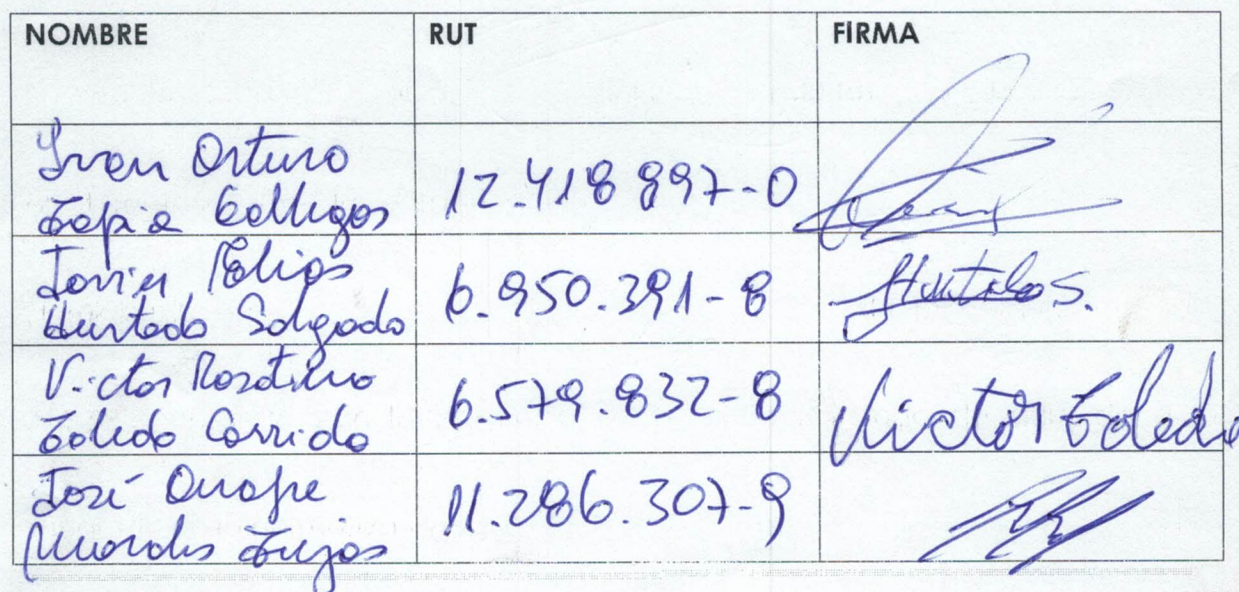 NOMBRE RUT FIRMA
Ivan Arturo
Tapia Gallegos 12.418.897-0
Javier Elias
Hurtado Salgado 6.950.391-8 Hurtado S.
Victor Rosalino
Toledo Garrido 6.579.832-8 Victor Toledo
José
Morales 11.286.307-9